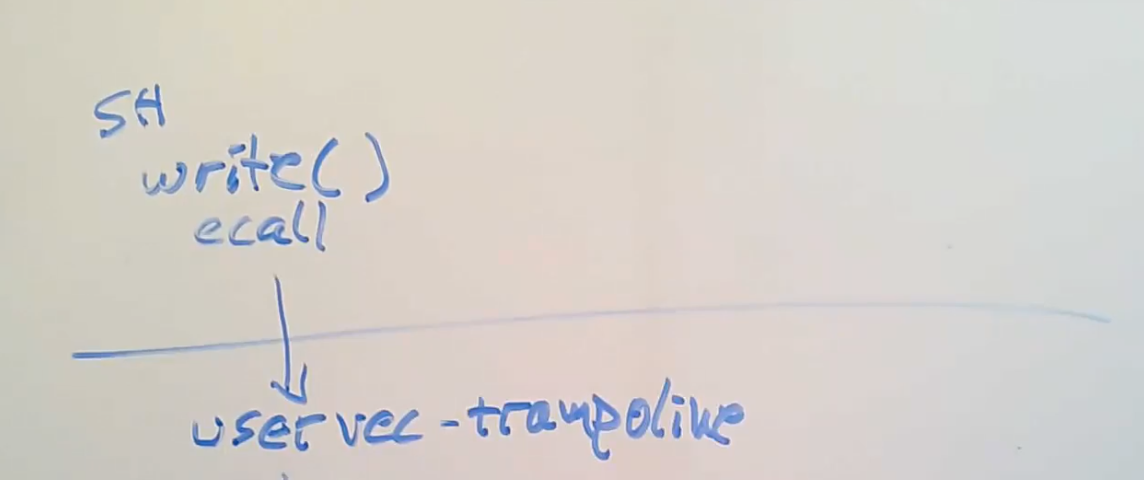 SH
write()
ecall
uservec - trampoline